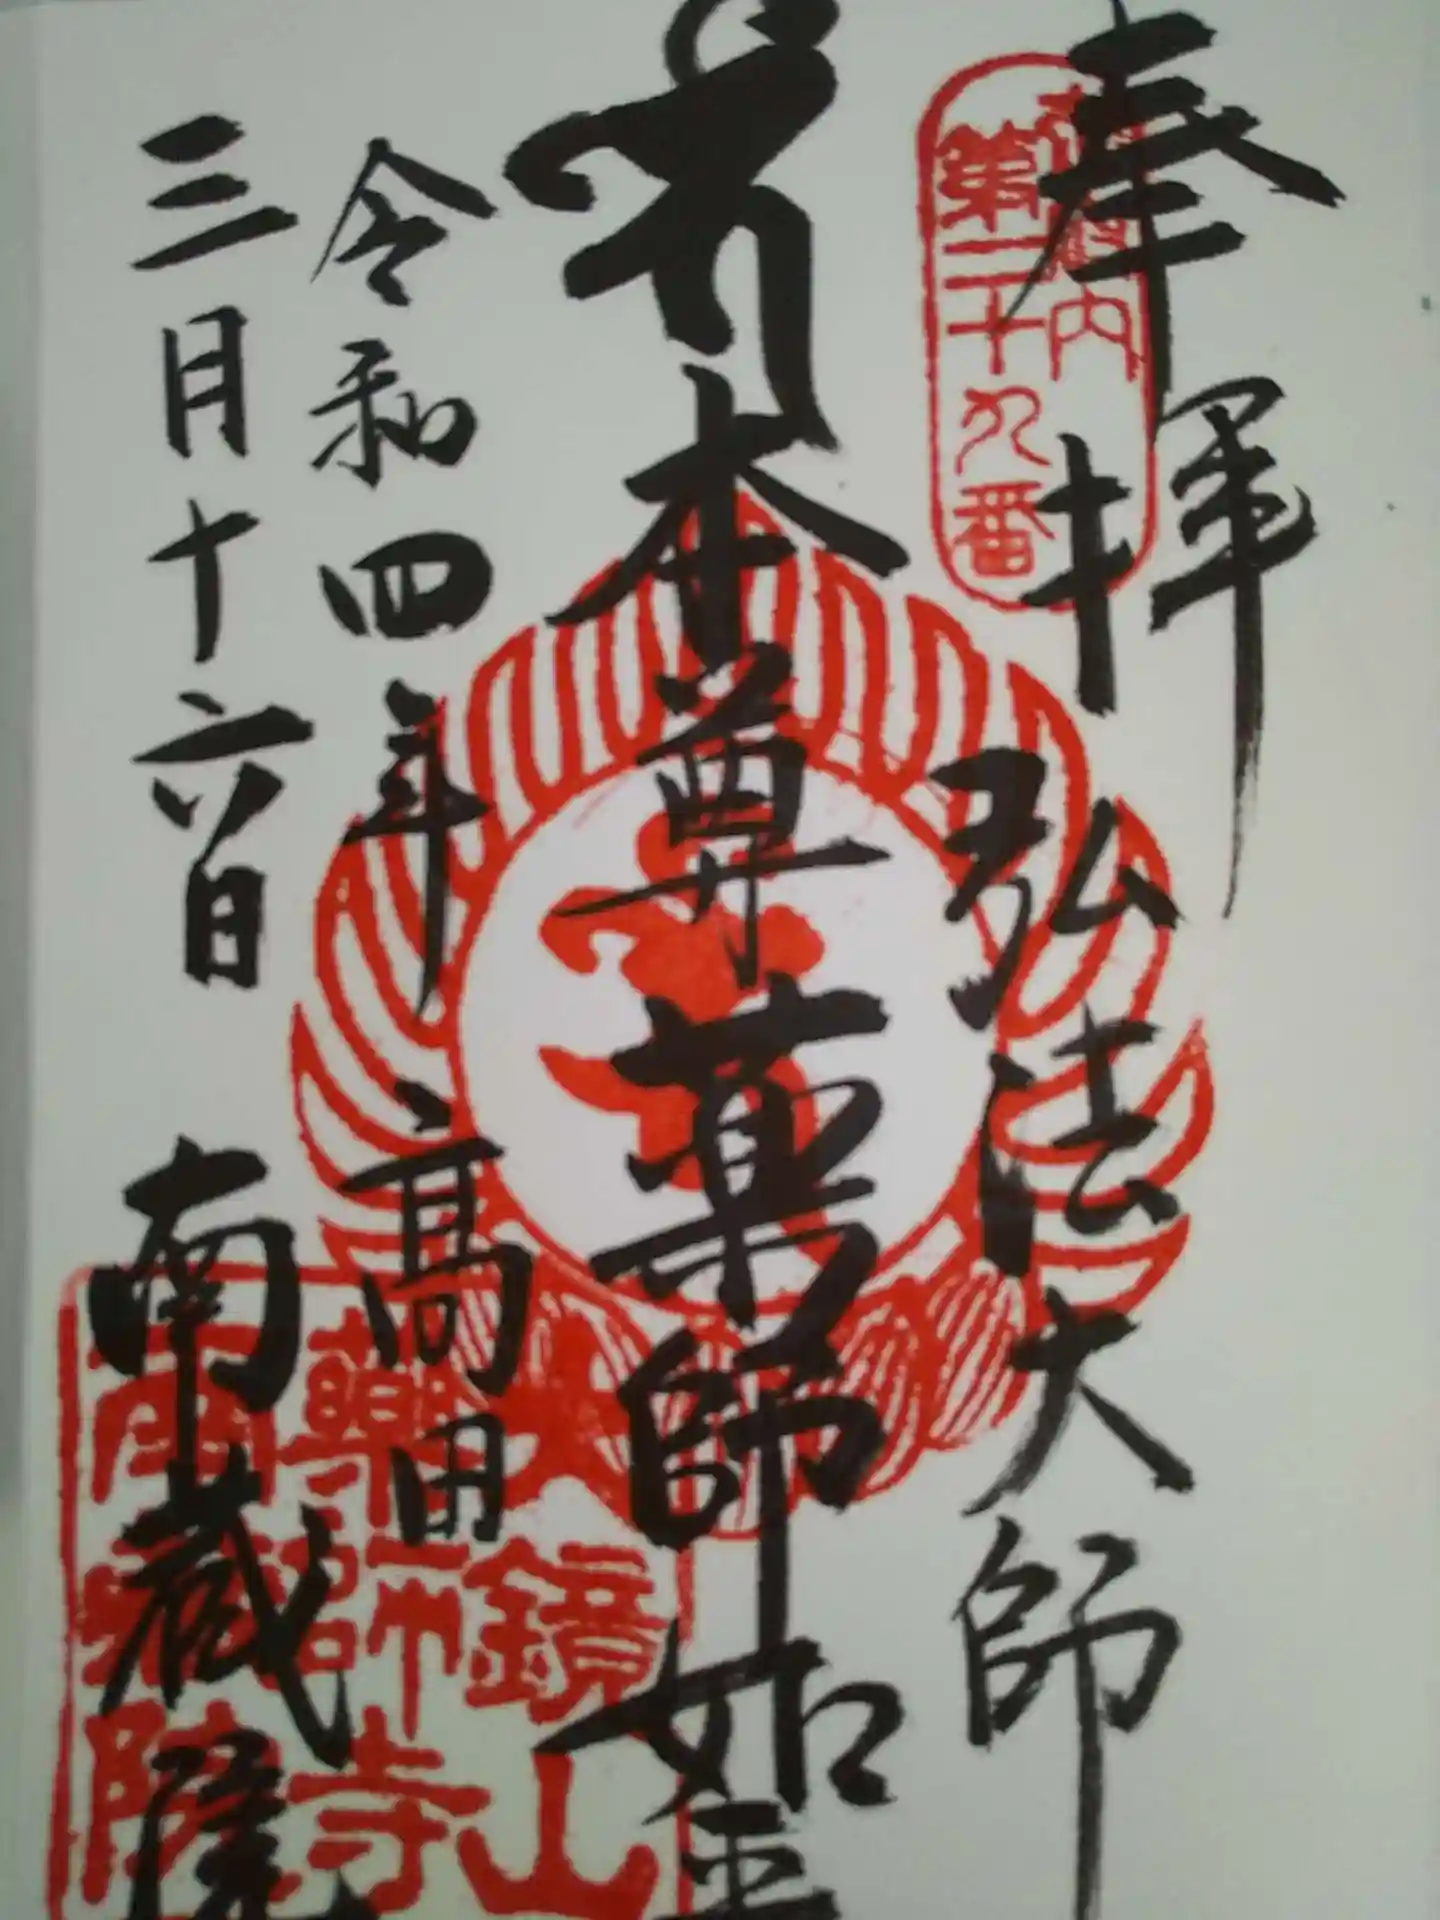 奉拝
弘法大師
本尊薬師如来
令和四年
三月十六日
高田
南蔵院
御府内
第二十九番
鏡山
薬師寺
南蔵院